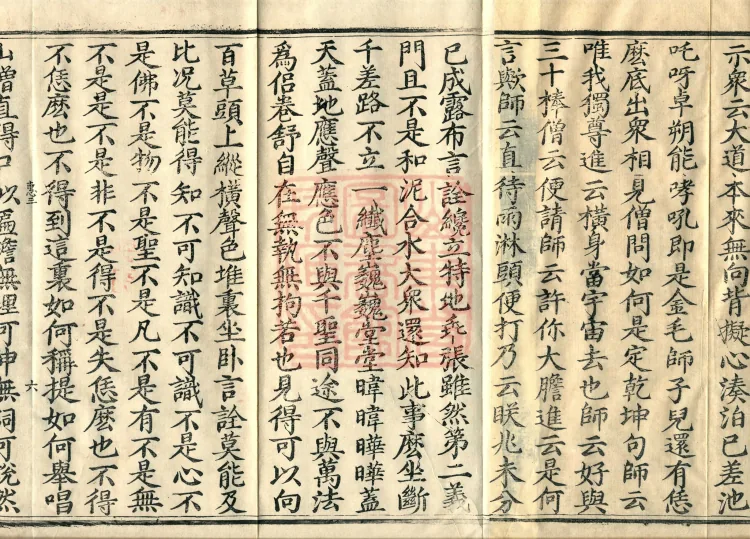 示衆云大道本來無向背擬心湊泊已差池
吒呀卓朔能哮吼即是金毛師子兒還有恁
麽底出衆相見僧問如何是定乾坤句師云
唯我獨尊進云橫身當宇宙去也師云好與
三十棒僧云便請師云許你大膽進云是何
言歟師云直待雨淋頭便打乃云朕兆未分
已成露布言詮纔立特地乖張雖然第二義
門且不是和泥合水大衆還知此事麽坐斷
千差路不立一纖塵巍巍堂堂暐暐曄曄蓋
天蓋地應聲應色不與千聖同途不與萬法
爲侶卷舒自在無執無拘若也見得可以向
百草頭上縱橫聲色堆裏坐卧言詮莫能及
比况莫能得知不可知識不可識不是心不
是佛不是物不是聖不是凡不是有不是無
不是是不是非不是得不是失恁麽也不得
不恁麽也不得到這裏如何稱提如何舉唱
六
山僧直得口似匾擔無理可伸無詞可說然